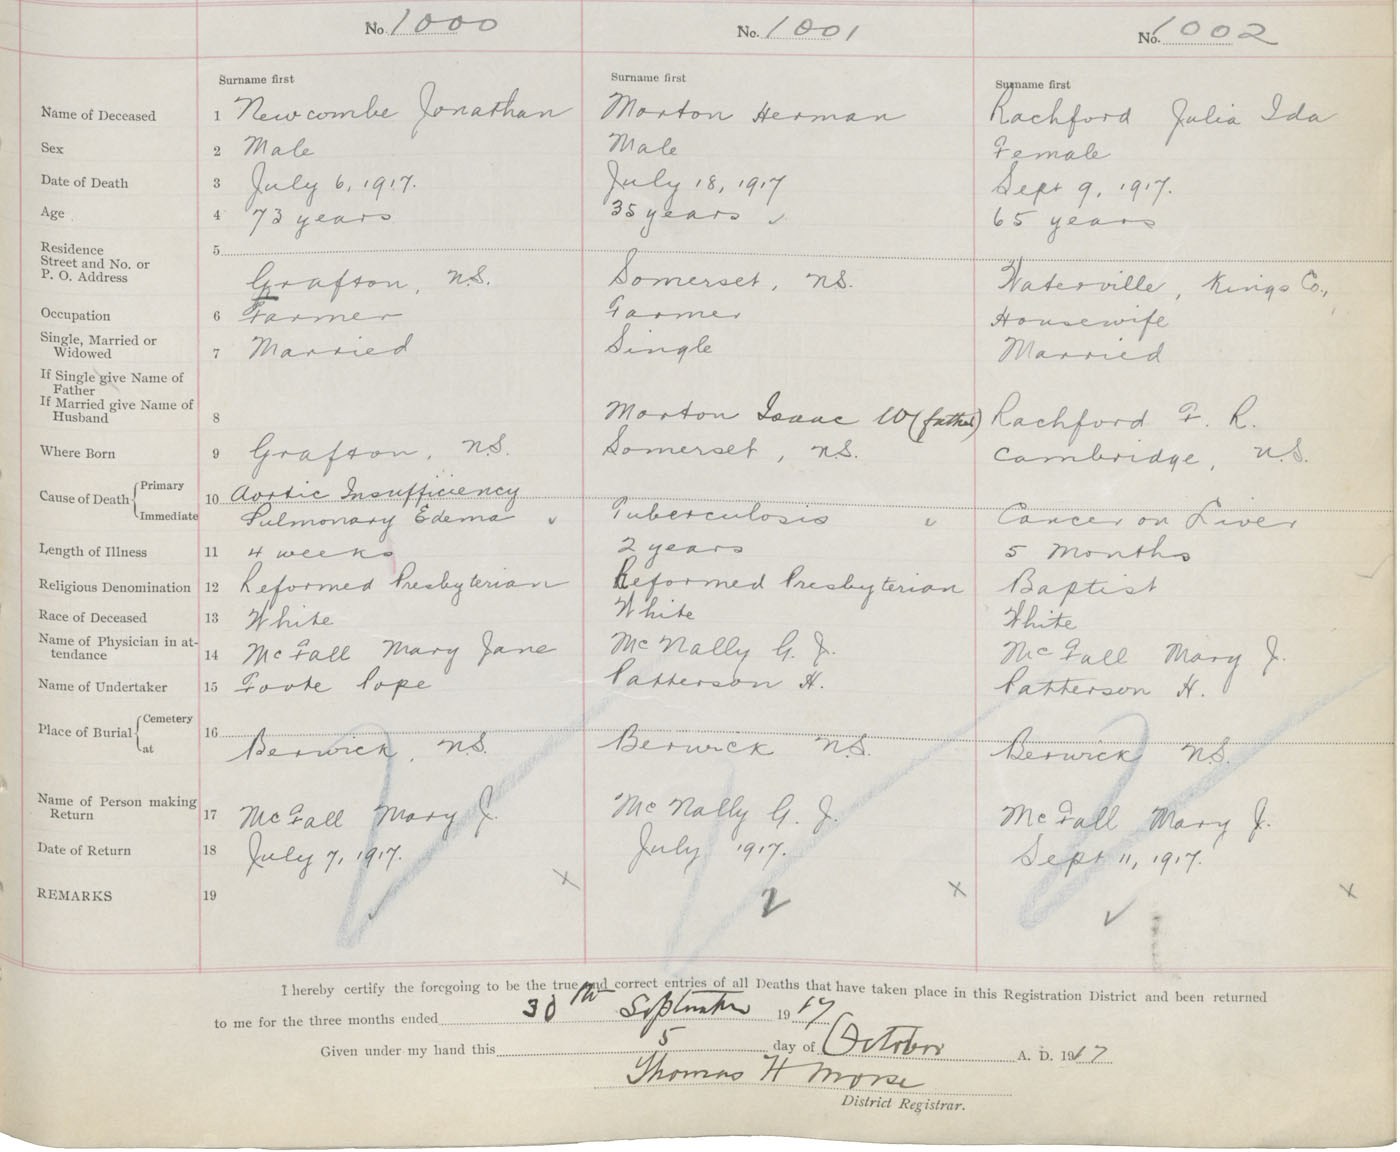 No. 1000 No. 1001 No. 1002
Surname first Surname first Surname first
Name of Deceased 1 Newcombe Jonathan Morton Herman Rachford Julia Ida
Sex 2 Male Male Female
Date of Death 3 July 6, 1917. July 18, 1917 Sept 9, 1917.
Age 4 73 years 35 years ✓ 65 years
Residence 5
Street and No. or
P. O. Address Grafton, N.S. Somerset, N.S. Waterville, Kings Co.,
Occupation 6 Farmer Farmer Housewife
Single, Married or
Widowed 7 Married Single Married
If Single give Name of
Father
If Married give Name of
Husband 8 Morton Isaac W (father) Rachford F. R.
Where Born 9 Grafton, N.S. Somerset, N.S. Cambridge, N.S.
Cause of Death Primary 10 Aortic Insufficiency
Immediate Pulmonary Edema ✓ Tuberculosis ✓ Cancer on Liver
Length of Illness 11 4 weeks 2 years 5 Months
Religious Denomination 12 Reformed Presbyterian Reformed Presbyterian Baptist
Race of Deceased 13 White White White
Name of Physician in at-
tendance 14 McFall Mary Jane McNally G. J. McFall Mary J.
Name of Undertaker 15 Foote Pope Patterson H. Patterson H.
Place of Burial Cemetery 16
at Berwick, N.S. Berwick N.S. Berwick N.S.
Name of Person making
Return 17 McFall Mary J. McNally G. J. McFall Mary J.
Date of Return 18 July 7, 1917. July 1917. Sept 11, 1917.
REMARKS 19 ✓ x 2 x ✓ x
I hereby certify the foregoing to be the true and correct entries of all Deaths that have taken place in this Registration District and been returned
to me for the three months ended 30th September 1917
Given under my hand this 5 day of October A. D. 1917
Thomas H Morse
District Registrar.